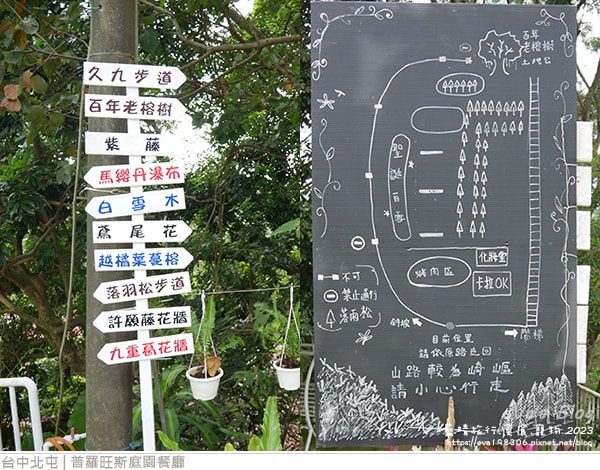 久九步道
百年老榕樹
紫藤
馬纓丹瀑布
白雪木
鳶尾花
越橘葉蔓榕
落羽松步道
許願藤花牆
九重葛花牆
百年
老榕樹
土地公
聖誕白雪
化妝室
烤肉區
卡拉OK
不可
禁止通行
落雨松
斜坡
階梯
目前位置
請依原路返回
山路較為崎嶇
請小心行走
2023
https://eva198306.pixnet.net/blog
台中北屯 | 普羅旺斯庭園餐廳